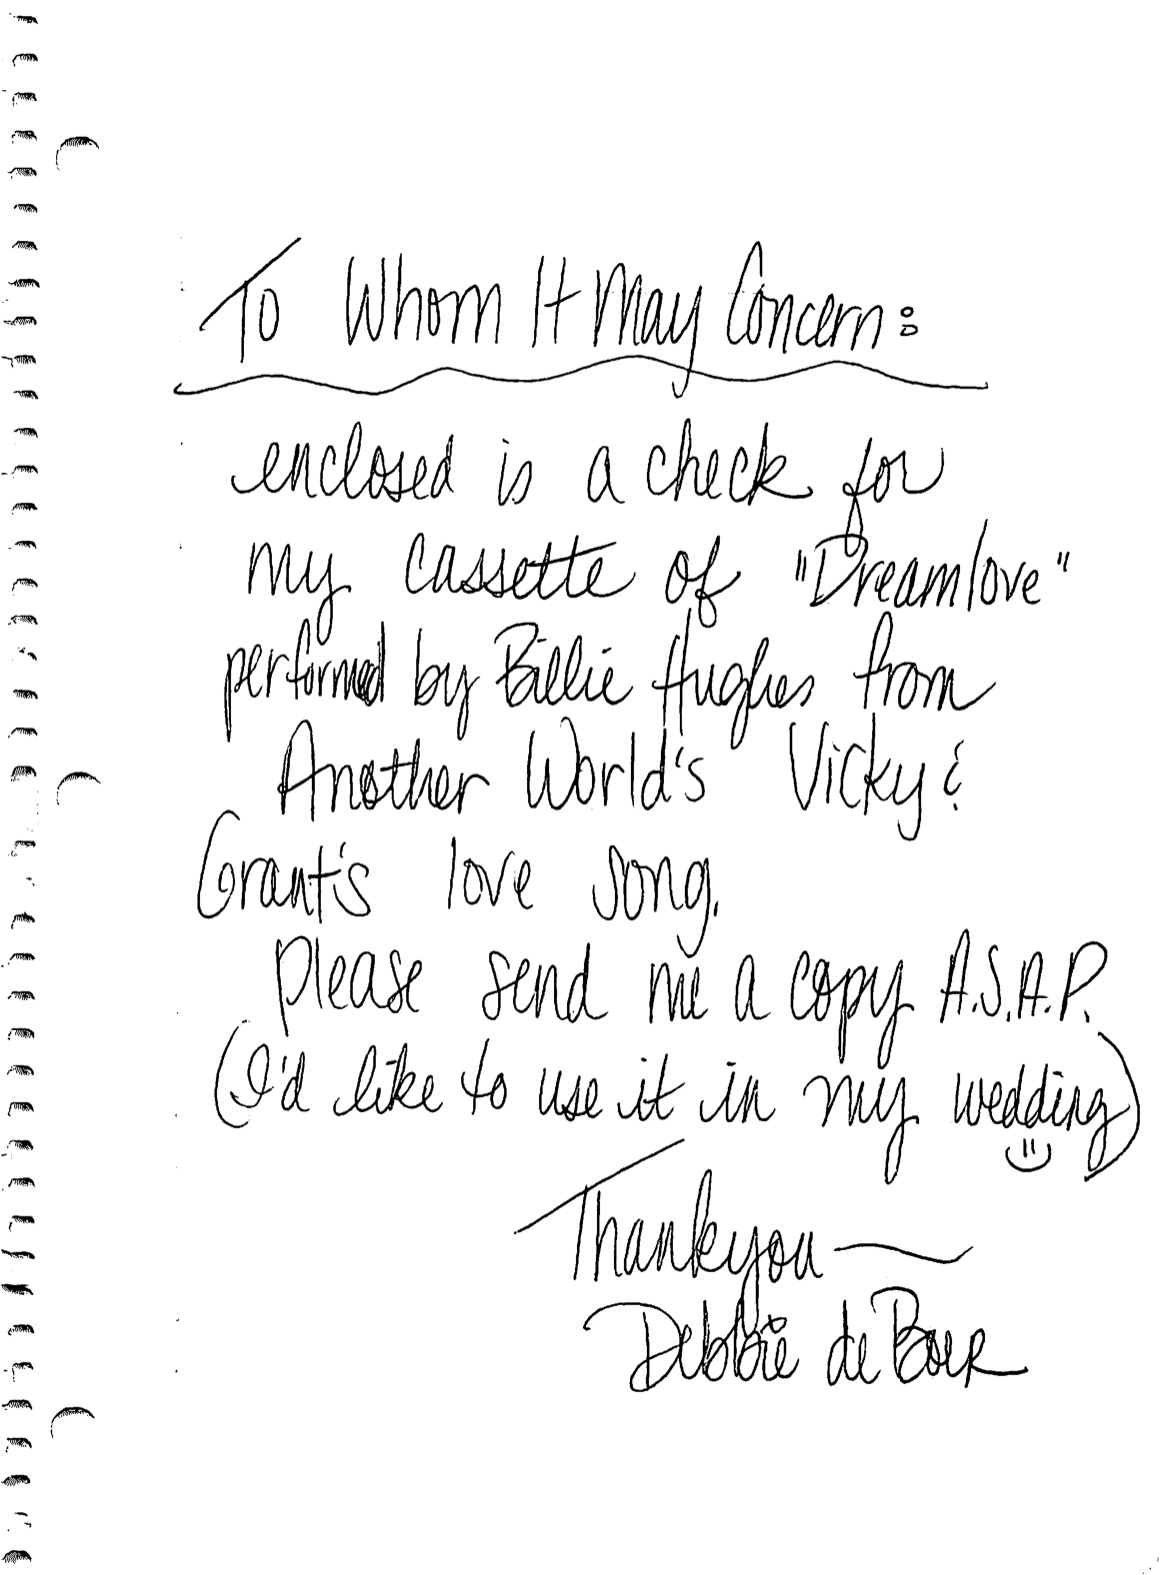 To Whom It May Concern:
enclosed is a check for
my cassette of "Dreamlove"
performed by Billie Hughes from
Another World's Vicky &
Grant's love song.
please send me a copy A.S.A.P.
(I'd like to use it in my wedding)
Thankyou —
Debbie de Boer